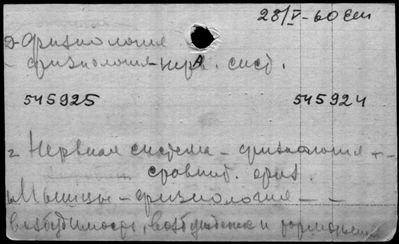 28/V-60 сен
Э-физиология
- физиология-нерв. сист.
545925 545924
2 Нервная система - физиология -
сравнит. физ.
Мышцы - физиология - -
возбудимость, возбуждение и торможение